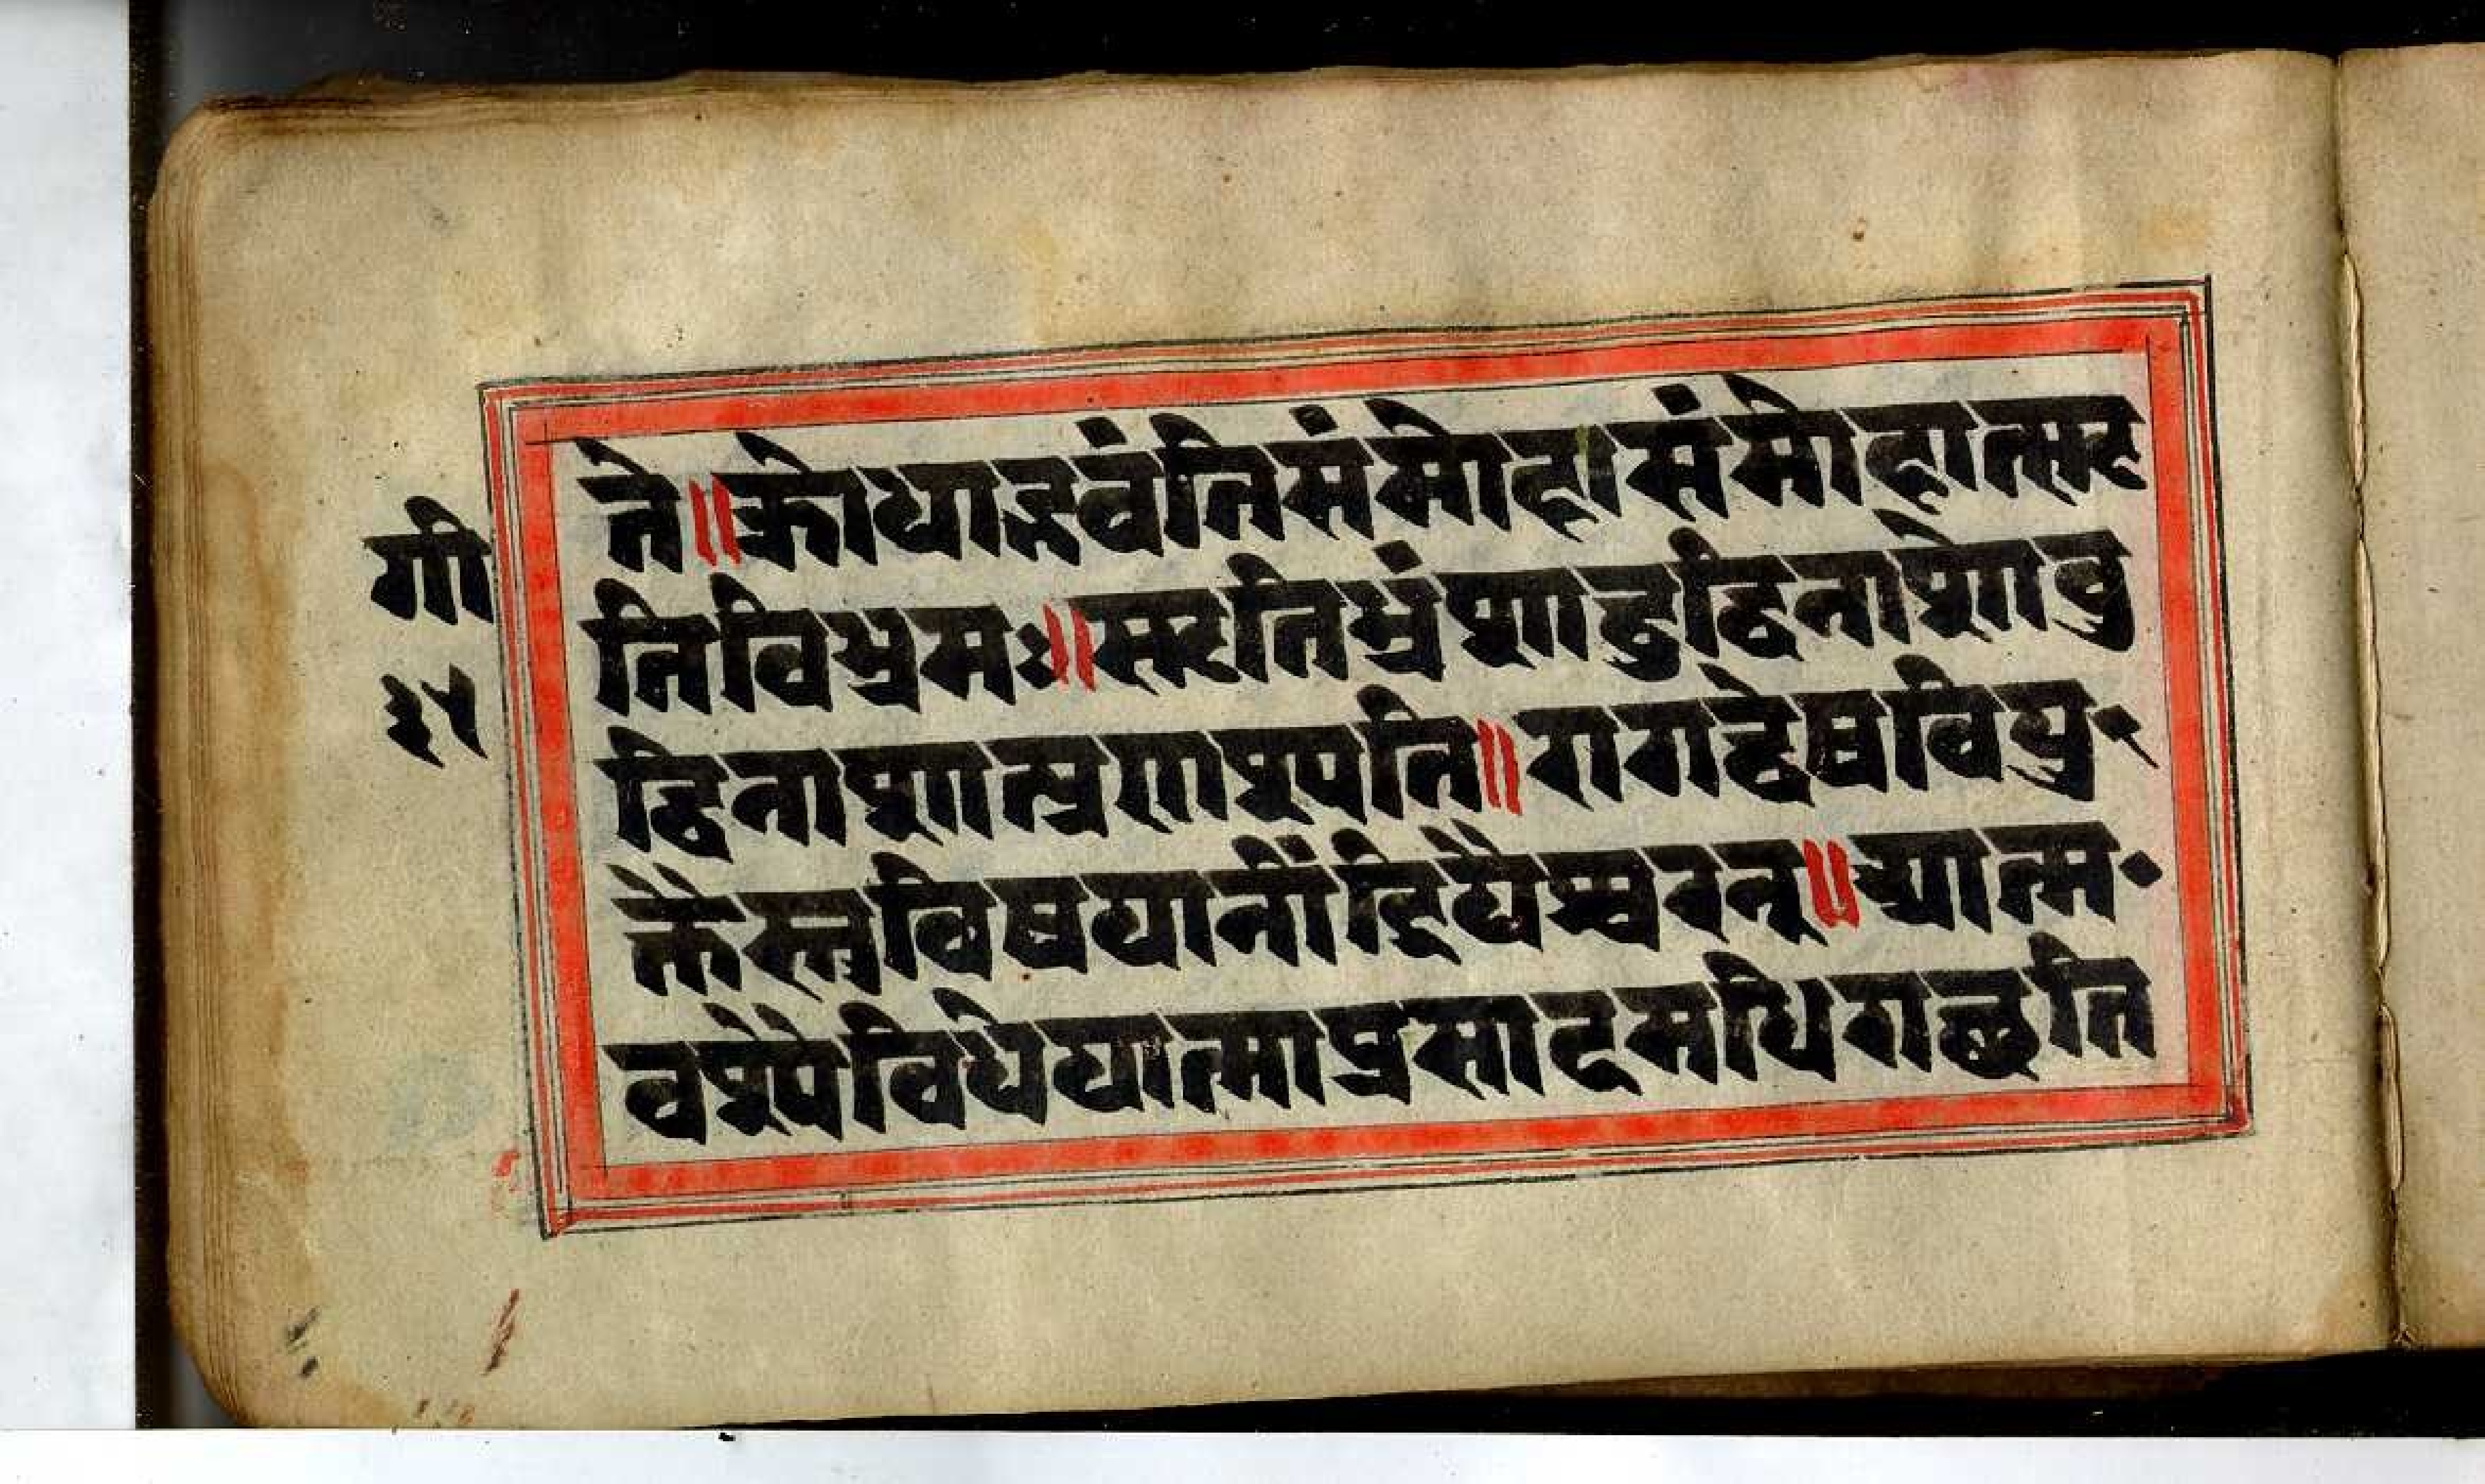 ते॥क्रोधाद्भवंतिसंमोहासंमोहात्स्मर
गी
तिविभ्रमः॥स्मरतिभ्रंशाद्बुद्धिनाशोबु
३५
द्धिनाशात्प्रणश्पति॥रागद्वेषवियु
क्तैस्तविषयानींद्रियैश्चरन्॥आत्म
वश्पैविधेयात्माप्रसादमधिगछति